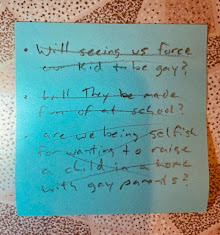 • Will seeing us force
our kid to be gay?
• Will They be made
fun of at school?
• are we being selfish
for wanting to raise
a child in a home
with gay parents?